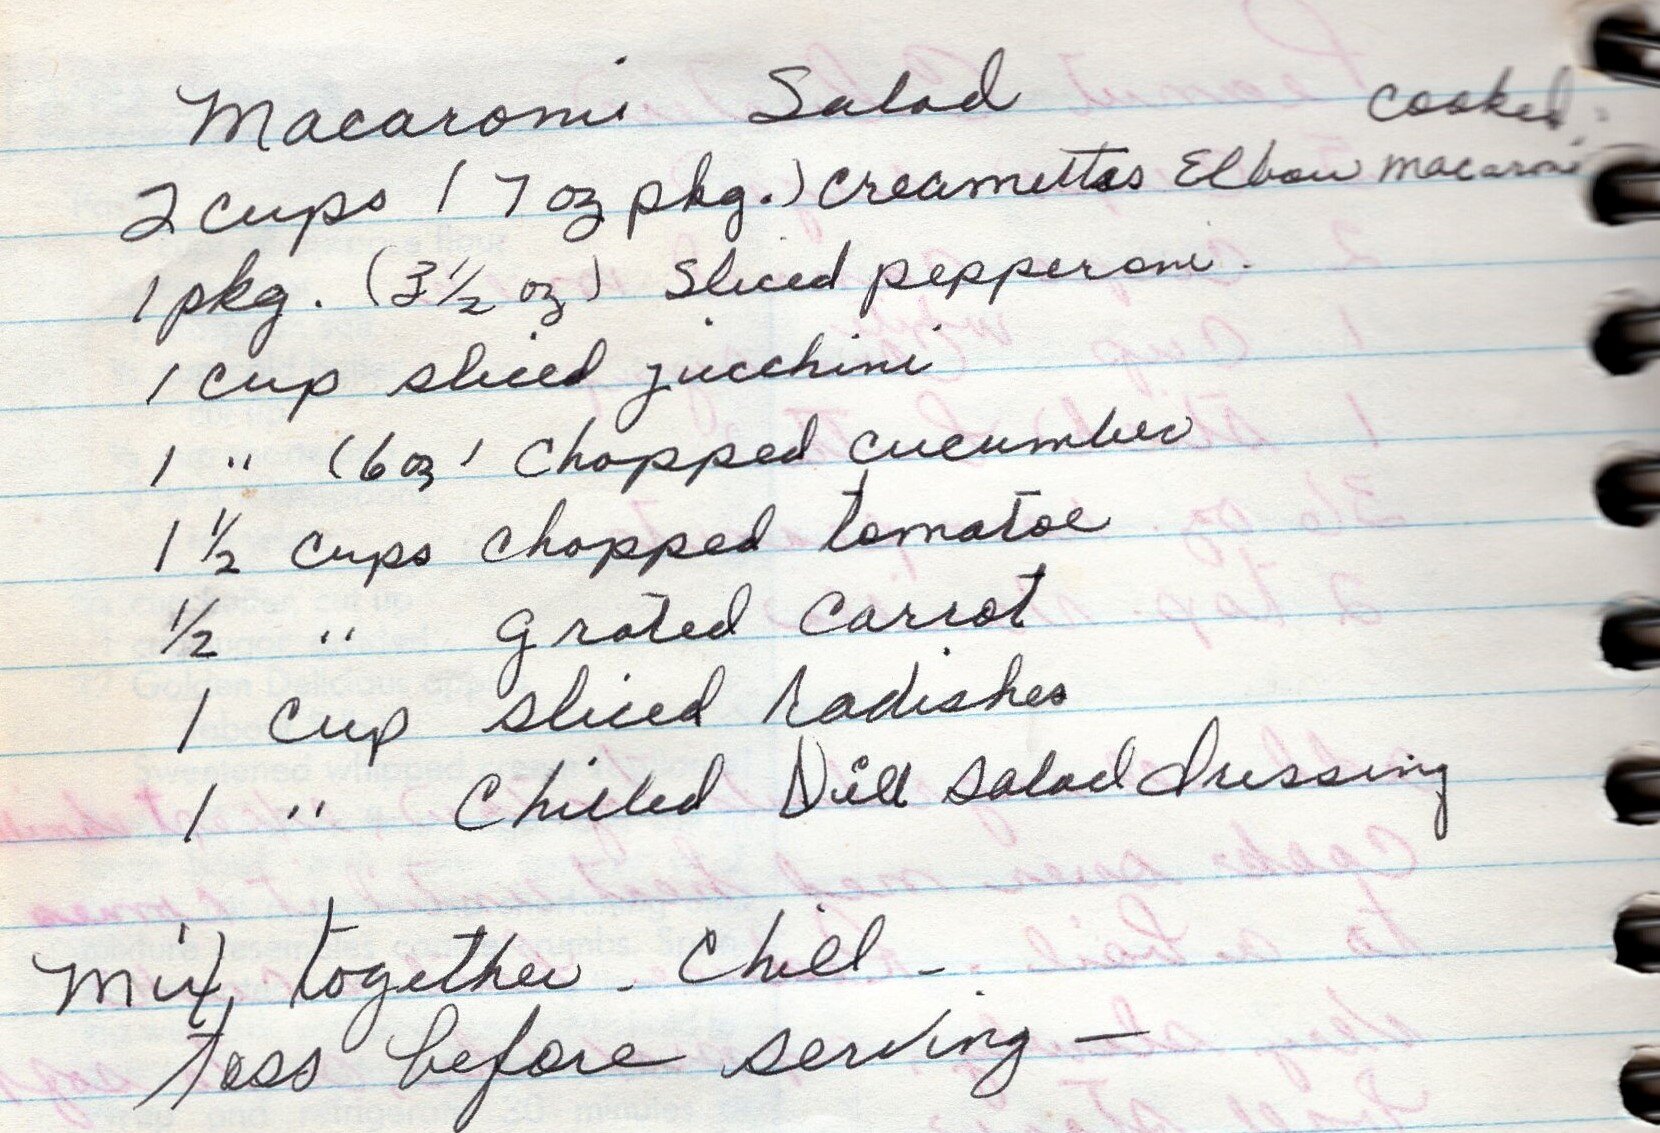 Macaroni Salad
cooked
2 cups ( 7 oz pkg.) creamettas Elbow macaroni
1 pkg. (3 1/2 oz) Sliced pepperoni.
1 cup sliced zucchini
1 " (6 oz) chopped cucumber
1 1/2 cups chopped tomatoe
1/2 " grated carrot
1 cup sliced radishes
1 " chilled Dill salad dressing
Mix together - chill -
toss before serving -